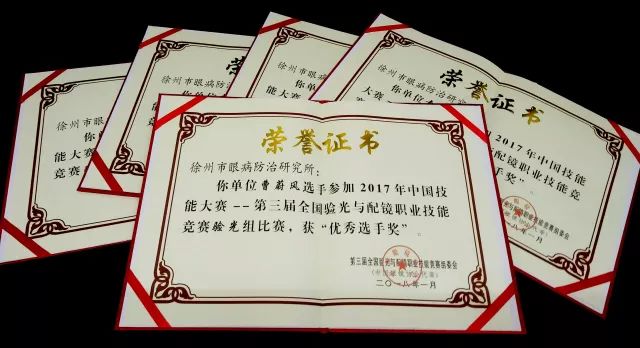 荣誉证书
徐州市眼病防治研究所：
你单位曹蔚风选手参加2017年中国技
能大赛--第三届全国验光与配镜职业技能
竞赛验光组比赛，获“优秀选手奖”。
第三届全国验光与配镜职业技能竞赛组委会
(中国眼镜协会代章)
二〇一八年一月
荣誉证书
徐州市眼病防治研究
你单位
能大赛
2017年中国技能
配镜职业技能竞
选手奖”。
徐州市眼病防治研
徐州市眼病防治
你单
能大赛
竞赛
徐州市眼病
你单
能大赛
竞赛